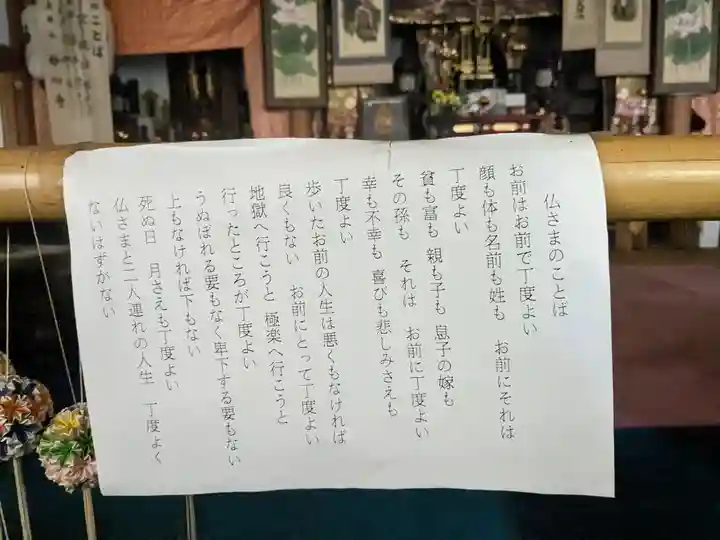 仏さまのことば
お前はお前で丁度よい
顔も体も名前も姓も　お前にそれは
丁度よい
貧も富も　親も子も　息子の嫁も
その孫も　それは　お前に丁度よい
幸も不幸も　喜びも悲しみさえも
丁度よい
歩いたお前の人生は悪くもなければ
良くもない　お前にとって丁度よい
地獄へ行こうと　極楽へ行こうと
行ったところが丁度よい
うぬぼれる要もなく卑下する要もない
上もなければ下もない
死ぬ日　月さえも丁度よい
仏さまと二人連れの人生　丁度よく
ないはずがない
のことば